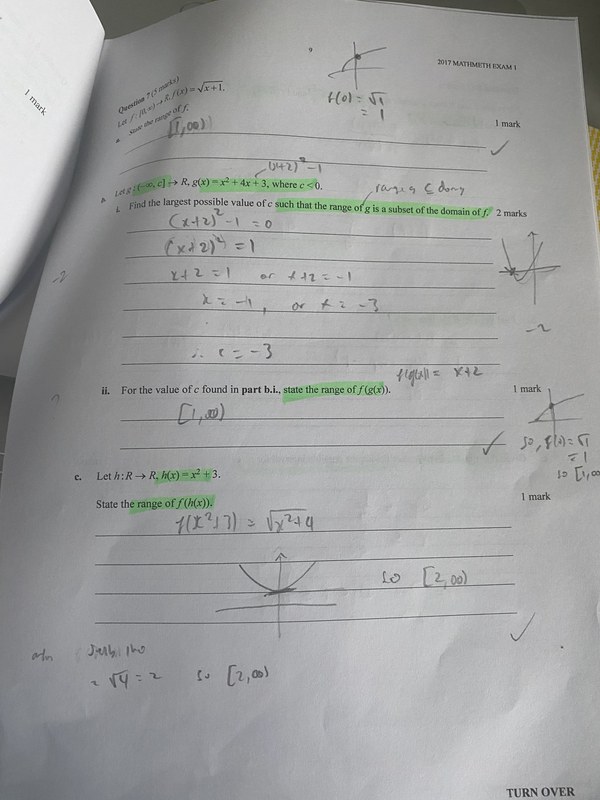 9
2017 MATHMETH EXAM 1
1 mark
Question 7 (5 marks)
Let f : [0, ∞) → R, f(x) = √x + 1.
f(0) = √1
= 1
a. State the range of f.
1 mark
[1, ∞)
(x+2)² − 1
b. Let g : (−∞, c] → R, g(x) = x² + 4x + 3, where c < 0.
i. Find the largest possible value of c such that the range of g is a subset of the domain of f. 2 marks
(x+2)² − 1 = 0
(x+2)² = 1
x + 2 = 1 or x + 2 = −1
x = −1, or x = −3
−2
∴ c = −3
f(g(x)) = x+2
ii. For the value of c found in part b.i., state the range of f(g(x)). 1 mark
[1, ∞)
so, f(0) = √1
= 1
so [1, ∞
c. Let h : R → R, h(x) = x² + 3.
State the range of f(h(x)). 1 mark
f(x²+3) = √x²+4
so [2, ∞)
= √4 = 2 so [2, ∞)
TURN OVER